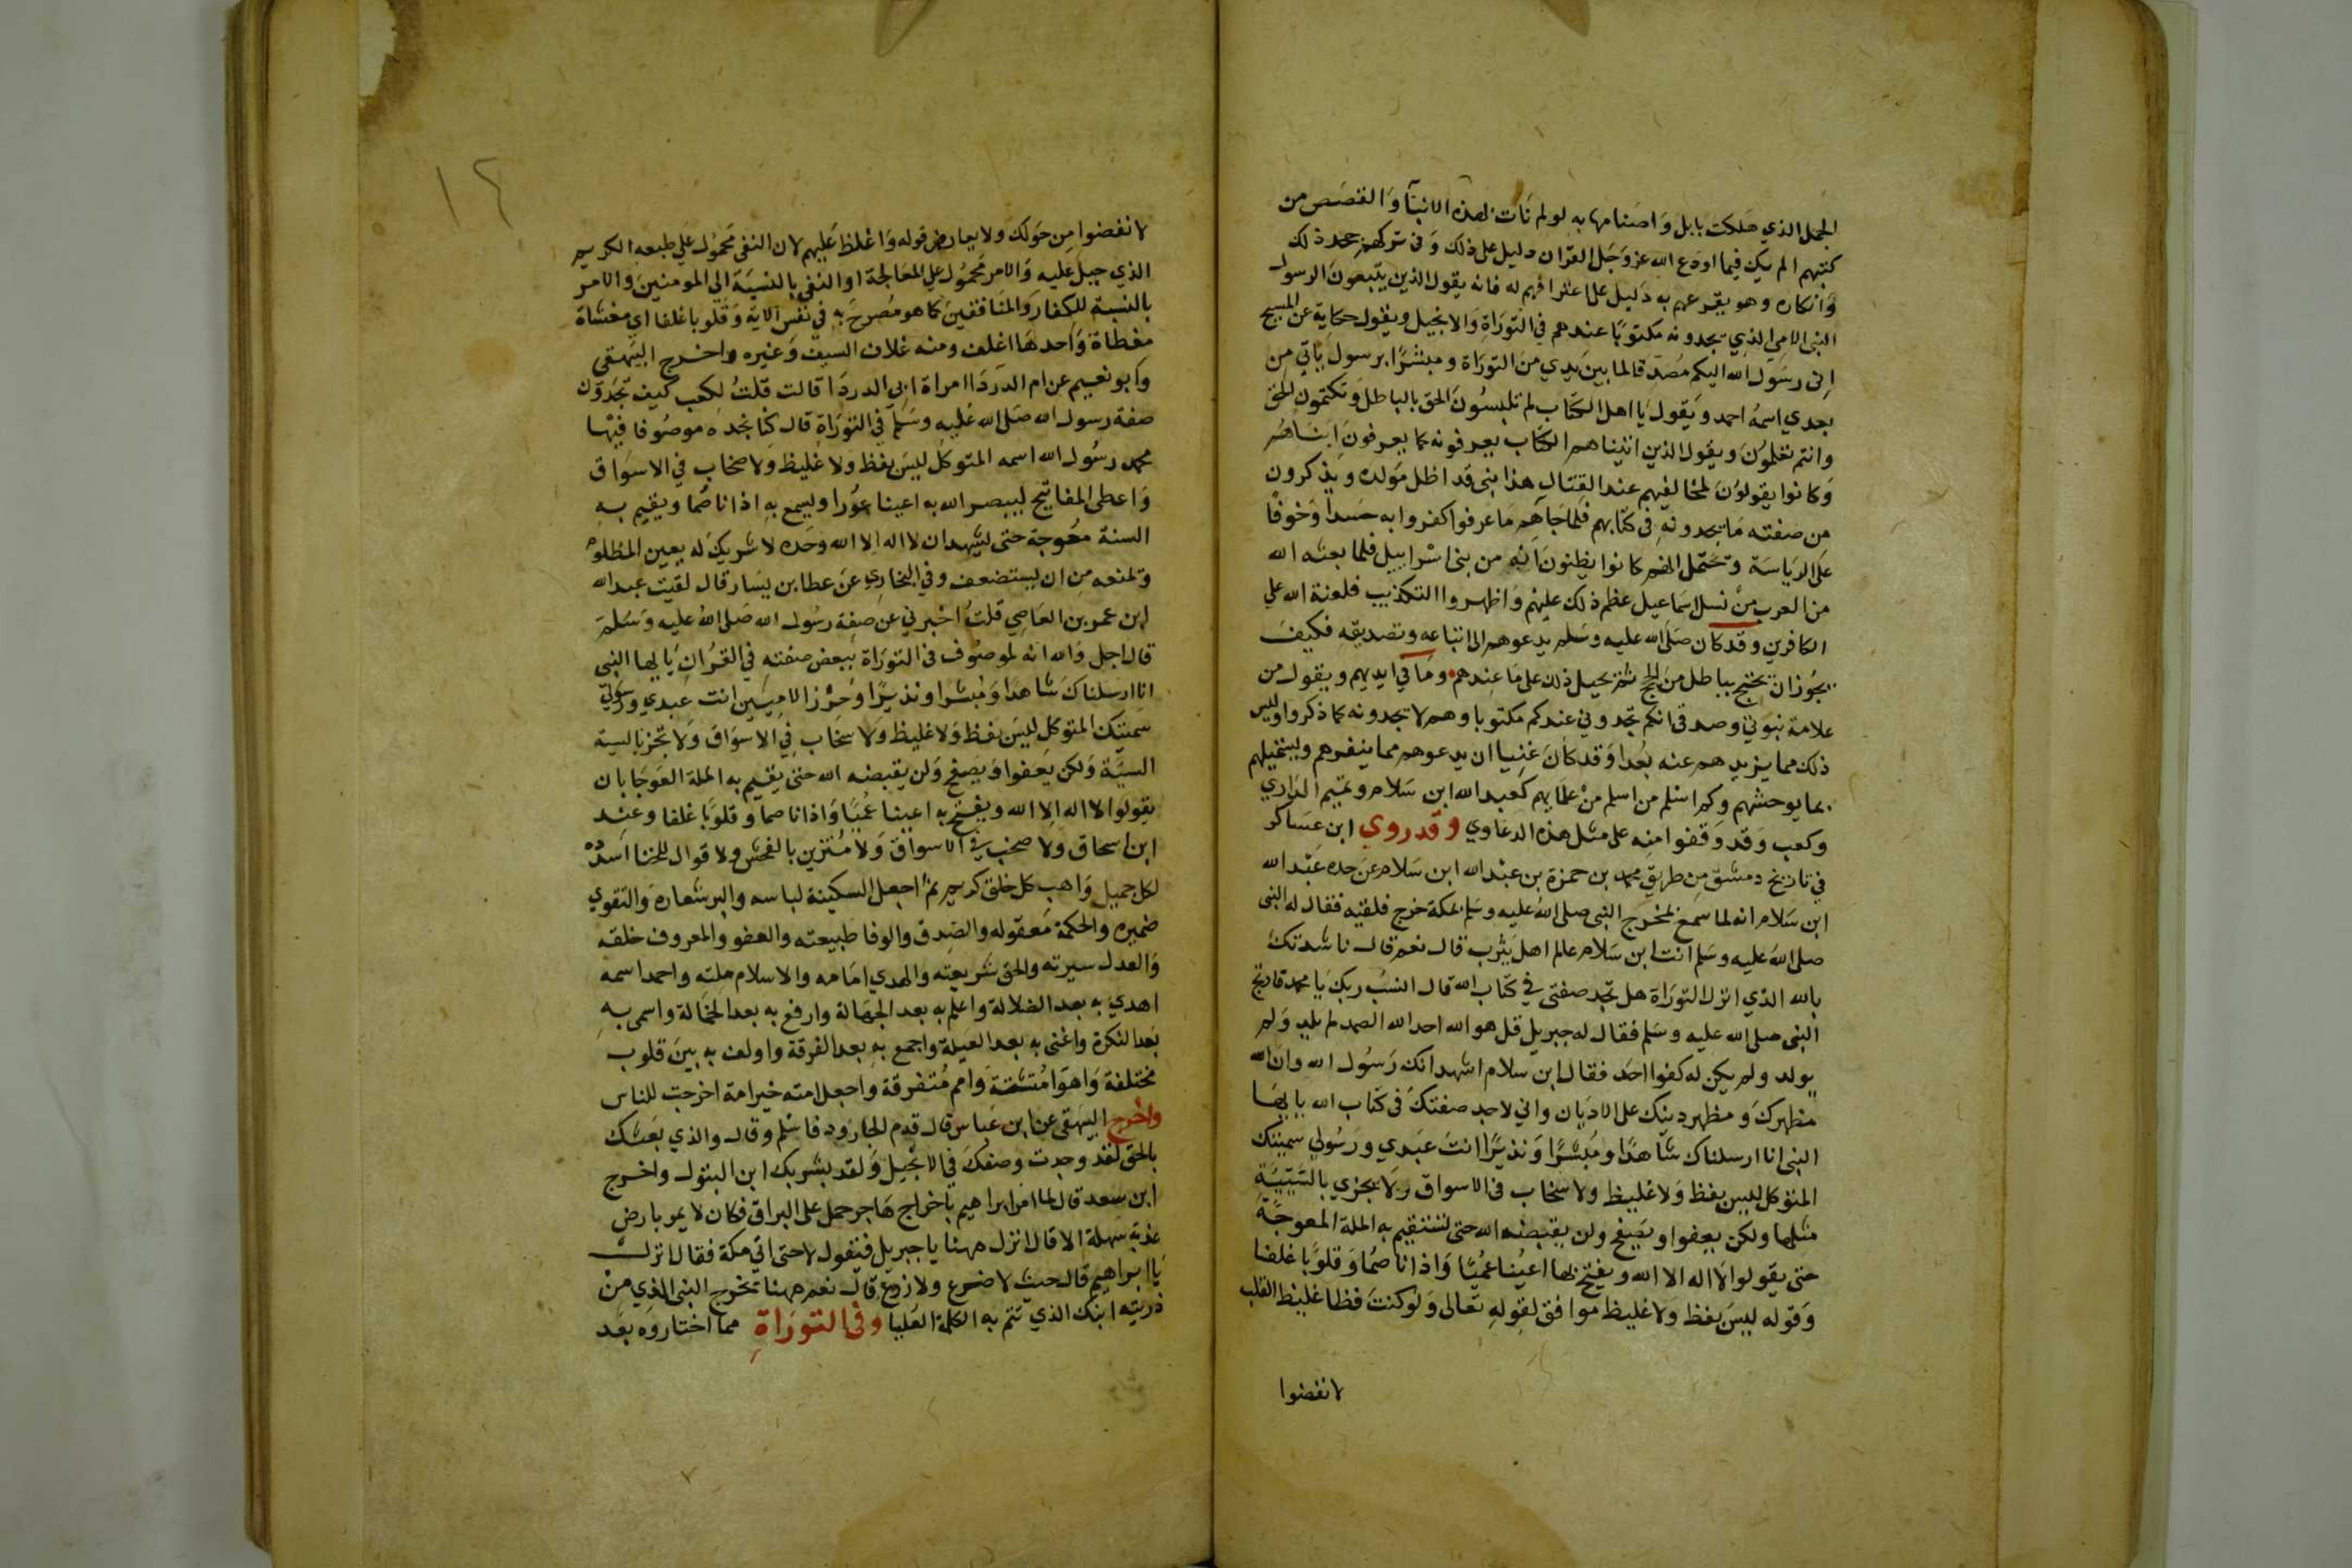 الجمل الذي هلكت بابل واصنامها به لو لم تات لهذه الانبآ والقصص من
كتبهم الم يك فيما اودع الله عز وجل القران دليل على ذلك وفي تركهم جحد ذلك
وانكاره وهو يقرعهم به دليل على اعترافهم له فانه يقول الذين يتبعون الرسول
النبي الامي الذي يجدونه مكتوبا عندهم في التوراة والانجيل ويقول حكاية عن المسيح
اني رسول الله اليكم مصدقا لما بين يدي من التوراة ومبشرا برسول ياتي من
بعدي اسمه احمد ويقول يا اهل الكتاب لم تلبسون الحق بالباطل وتكتمون الحق
وانتم تعلمون ويقول الذين اتيناهم الكتاب يعرفونه كما يعرفون ابناهم
وكانوا يقولون لمخالفيهم عند القتال هذا نبي قد اظل مولده ويذكرون
من صفته ما يجدونه في كتابهم فلما جاهم ما عرفوا كفروا به حسدا وخوفا
على الرياسة وتحتمل انهم كانوا يظنون انه من بني اسراييل فلما بعثه الله
من العرب من نسل اسماعيل عظم ذلك عليهم واظهروا التكذيب فلعنة الله علي
الكافرين وقد كان صلى الله عليه وسلم يدعوهم الى اتباعه وتصديقه فكيف
يجوز ان يحتج بباطل من الحج ثم يحيل ذلك على ما عندهم وما في ايديهم ويقول من
علامة نبوتي وصدقي انكم تجدوني عندكم مكتوبا وهم لا يجدونه كما ذكر اوليس
ذلك مما يزيدهم عنه بعدا وقد كان غنيا ان يدعوهم مما ينفرهم ويستميلهم
بما يوحشهم وكم اسلم من اسلم من علمايهم كعبد الله ابن سلام وتميم الداري
وكعب وقد وقفوا منه على مثل هذه الدعاوي وقد روي ابن عساكر
في تاريخ دمشق من طريق محمد بن حمزة بن عبد الله ابن سلام عن جده عبد الله
ابن سلام انه لما سمع لمخرج النبي صلى الله عليه وسلم بمكة خرج فلقيه فقال له النبي
صلى الله عليه وسلم انت ابن سلام عالم اهل يثرب قال نعم قال ناشدتك
بالله الذي انزل التوراة هل تجد صفتي في كتاب الله قال انسب ربك يا محمد فارتج
النبي صلى الله عليه وسلم فقال له جبريل قل هو الله احد الله الصمد لم يلد ولم
يولد ولم يكن له كفوا احد فقال ابن سلام اشهد انك رسول الله وان الله
مظهرك ومظهر دينك على الاديان واني لاجد صفتك في كتاب الله يا ايها
النبي انا ارسلناك شاهدا ومبشرا ونذيرا انت عبدي ورسولي سميتك
المتوكل ليس بفظ ولا غليظ ولا سخاب في الاسواق ولا يجزي بالسيية
مثلها ولكن يعفوا ويصفح ولن يقبضه الله حتى تستقيم به الملة المعوجة
حتى يقولوا لا اله الا الله ويفتح بها اعينا عميا واذانا صما وقلوبا غلفا
وقوله ليس بفظ ولا غليظ موافق لقوله تعالى ولو كنت فظا غليظ القلب
لانفضوا
١٢
لانفضوا من حولك ولا يعارض قوله واغلظ عليهم لان النفى محمول علي طبعه الكريم
الذي جبل عليه والامر محمول علي المعالجة او النفي بالنسبة الي المومنين والامر
بالنسبة للكفار والمنافقين كما هو مصرح به في نفس الاية وقلوبا غلفا اي مغشاة
مغطاة واحدها اغلف ومنه غلاف السيف وغيره واخرج البيهقى
وابو نعيم عن ام الدردا امراة ابي الدردا قالت قلت لكعب كيف تجدون
صفة رسول الله صلى الله عليه وسلم في التوراة قال كنا نجده موصوفا فيها
محمد رسول الله اسمه المتوكل ليس بفظ ولا غليظ ولا صخاب في الاسواق
واعطى المفاتيح ليبصر الله به اعينا عورا ويسمع به اذانا صما ويقيم به
السنة معوجة حتى يشهد ان لا اله الا الله وحده لا شريك له يعين المظلوم
وتمنعه من ان يستضعف وفي البخاري عن عطا بن يسار قال لقيت عبد الله
ابن عمر بن العاصي قلت اخبرني عن صفة رسول الله صلى الله عليه وسلم
قال اجل والله انه لموصوف في التوراة ببعض صفته في القران يا ايها النبي
انا ارسلناك شاهدا ومبشرا ونذيرا وحرزا للاميين انت عبدي ورسولي
سميتك المتوكل ليس بفظ ولا غليظ ولا سخاب في الاسواق ولا تجز بالسية
السيّة ولكن يعفوا ويصفح ولن يقبضه الله حتى يقيم به الملة العوجا بان
يقولوا لا اله الا الله ويفتح به اعينا عميا واذانا صما وقلوبا غلفا وعند
ابن اسحاق ولا صخب في الاسواق ولا متزين بالفحش ولا قوال للخنا اسدده
لكل جميل واهب كل خلق كريم ثم اجعل السكينة لباسه والبر شعاره والتقوي
ضميره والحكمة معقوله والصدق والوفا طبيعته والعفو والمعروف خلقه
والعدل سيرته والحق شريعته والهدي امامه والاسلام ملته واحمد اسمه
اهدي به بعد الضلالة واعلم به بعد الجهالة وارفع به بعد الخمالة واسمى به
بعد النكرة واغنى به بعد العيلة واجمع به بعد الفرقة واولف به بين قلوب
مختلفة واهوا متشتتة وامم متفرقة واجعل امته خير امة اخرجت للناس
واخرج البيهقى عن ابن عباس قال قدم الجارود فاسلم وقال والذي بعثك
بالحق لقد وجدت وصفك في الانجيل ولقد بشر بك ابن البتول واخرج
ابن سعد قال لما امر ابراهيم باخراج هاجر حمل على البراق فكان لا يمر بارض
عذبة سهلة الا قال انزل ههنا يا جبريل فيقول لا حتى اتي مكة فقال انزل
يا ابراهيم قال حيث لا ضرع ولا زرع قال نعم ههنا تخرج النبي الذي من
ذريته ابنك الذي تتم به الكلمة العليا وفي التوراة مما اختاروه بعد